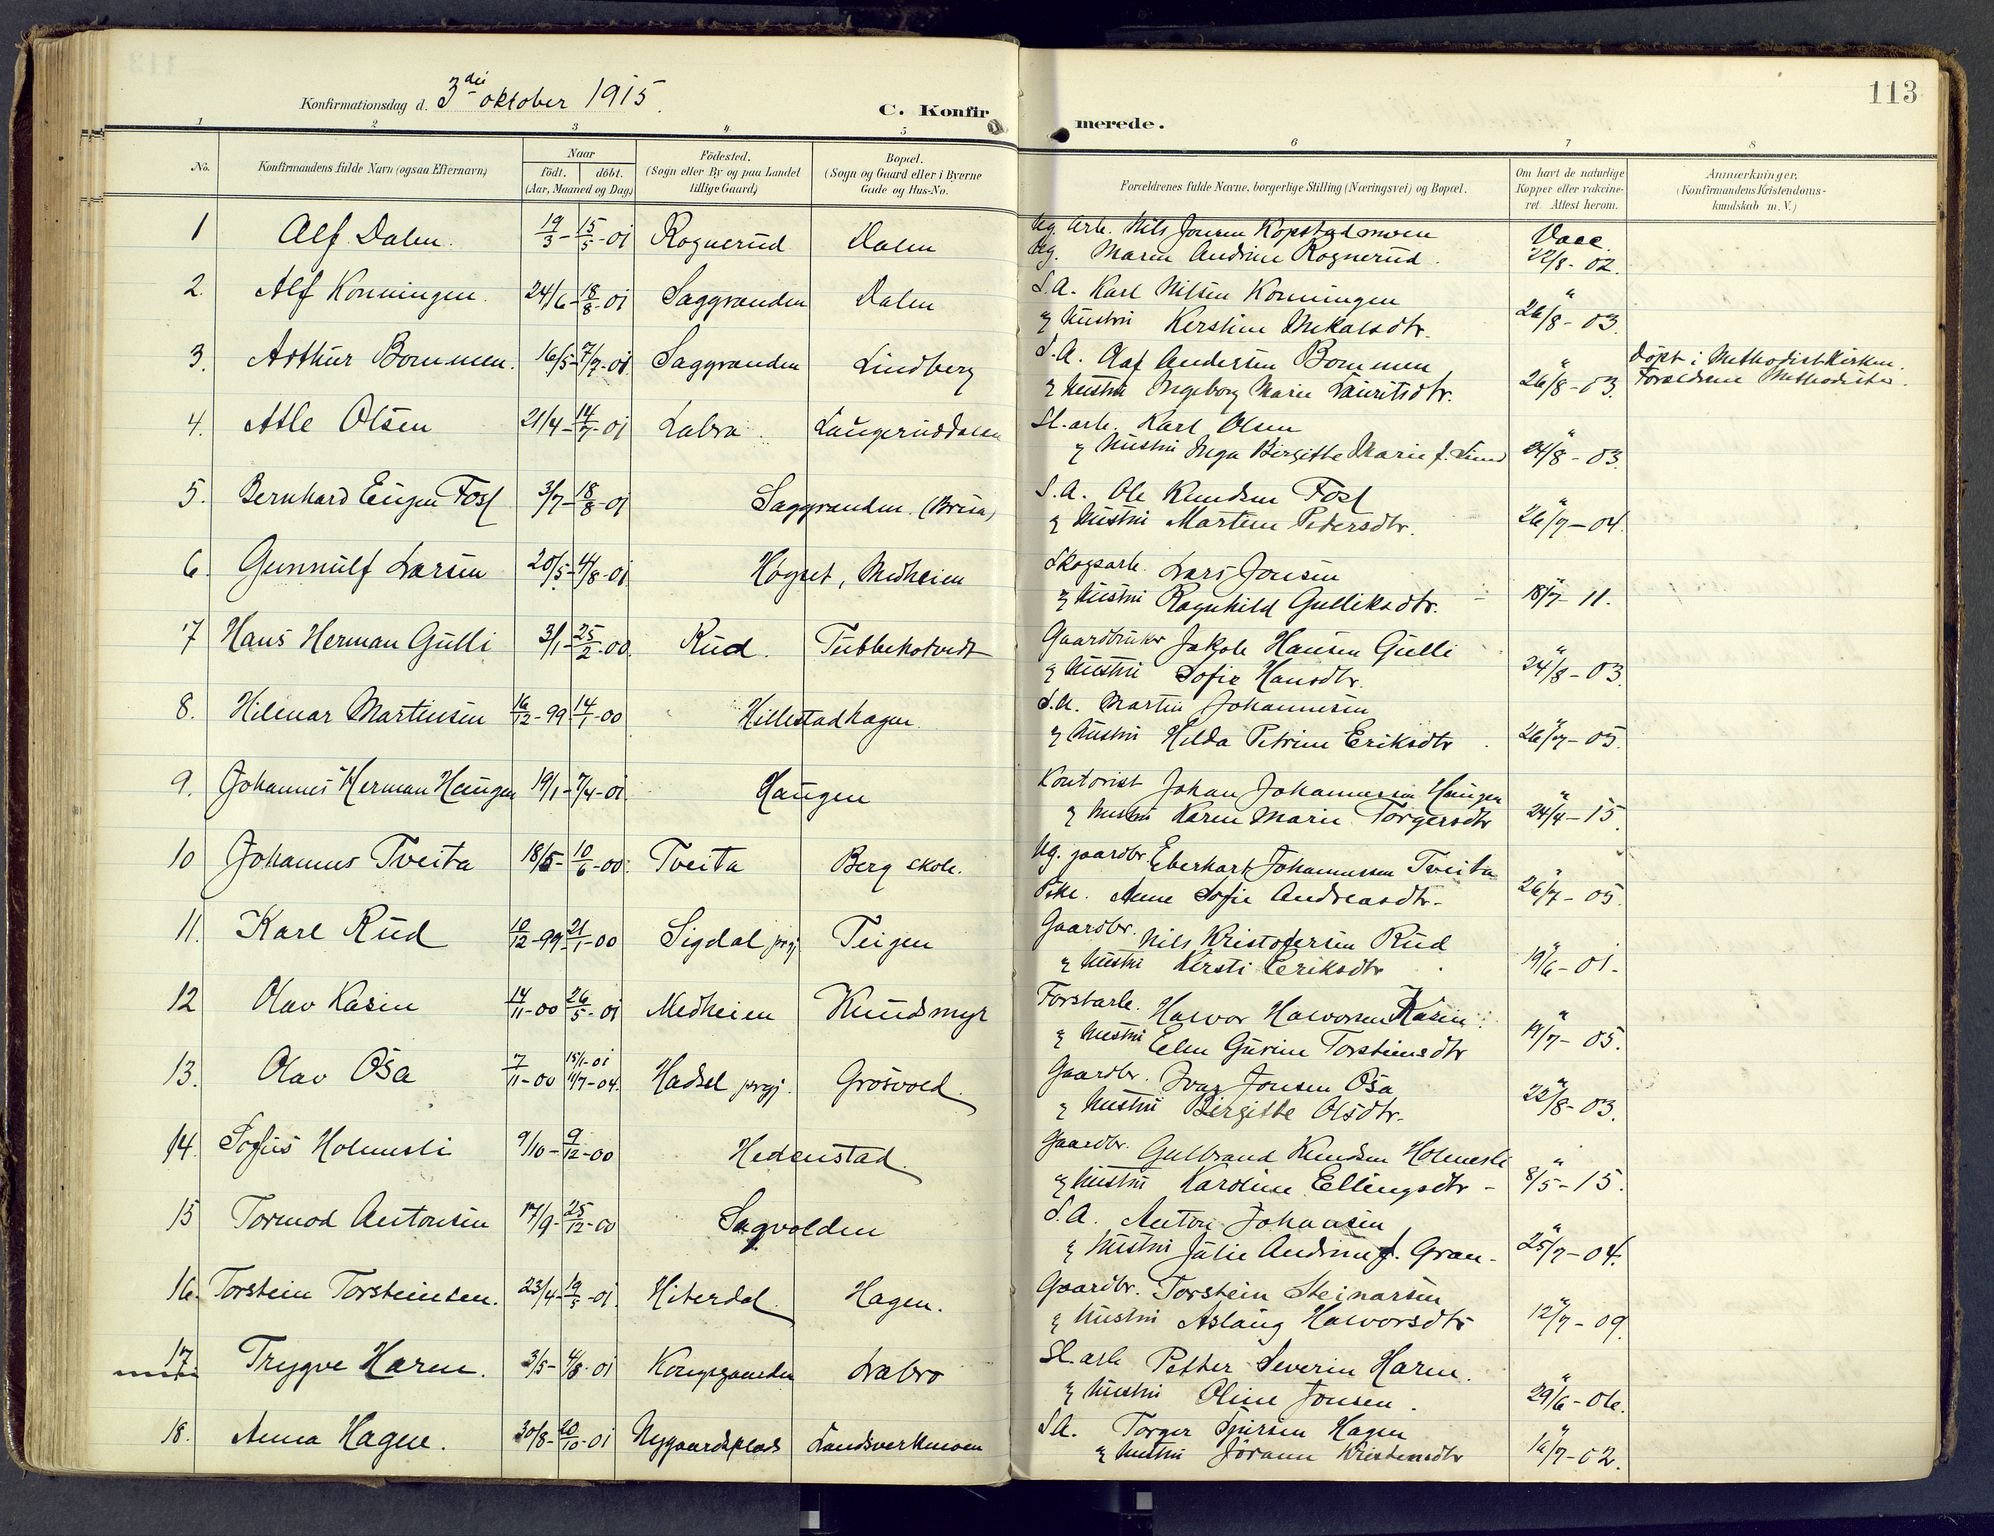 113
Konfirmationsdag d. 3die oktober 1915.
C. Konfirmerede.
1 2 3 4 5 6 7 8
No. Konfirmandens fulde Navn (ogsaa Efternavn) Naar födt. döbt. (Aar, Maaned og Dag) Födested. (Sogn eller By og paa Landet tillige Gaard) Bopæl. (Sogn og Gaard eller i Byerne Gade og Hus-No. Forældrenes fulde Navne, borgerlige Stilling (Næringsvei) og Bopæl. Om havt de naturlige Kopper eller vakcineret. Attest herom. Anmærkninger. (Konfirmandens Kristendomskundskab m. V.)
1 Alf Dalen. 19/3 - 15/5 - 01 Rognerud Dalen Ug. Arb. Nils Jonsen Kopstadmoen Vacc.
Ug. Maren Andrine Rognerud. 22/8 - 02.
2. Alf Konningen. 24/6 - 18/8 - 01 Saggranden Dalen S.A. Karl Nilsen Konningen "
og Hustru Kerstine Mikalsdtr. 26/8 - 03.
3. Arthur Bommen. 16/5 - 7/7 - 01 Saggranden Lindberg S.A. Olaf Andersen Bommen " Döpt i Methodistkirken.
og Hustru Ingeborg Marie Lauritsdtr. 26/8 - 03. Foreldrene Methodister.
4. Atle Olsen 21/4 - 14/7 - 01 Labra. Laugeruddalen Sl. arb. Karl Olsen "
og Hustru Inga Birgitte Marie f. Lund 24/8 - 03.
5. Bernhard Eugen Foss 3/7 - 18/8 - 01 Saggranden (Brua) S.A. Ole Knudsen Foss "
og Hustru Martine Pedersdtr. 26/7 - 04.
6. Gunnulf Larsen 20/5 - 4/8 - 01 Høgset, Medheien Skogsarb. Lars Jonsen "
og Hustru Ragnhild Gulliksdtr. 18/7 - 11.
7 Hans Herman Gulli 3/1 - 25/2 - 00. Rud. Tubbekotvedt Gaardbruker Jakob Hansen Gulli "
og Hustru Sofie Hansdtr. 24/8 - 03.
8. Hilmar Martinsen 16/12 - 99 14/1 - 00 Hillestadhagen. S.A. Martin Johannesen "
og Hustru Hilda Petrine Eriksdtr. 26/7 - 05.
9. Johannes Herman Haugen 19/1 - 7/4 - 01. Haugen Kontorist Johan Johannessen Haugen "
og Hustru Karen Marie Torgersdtr 24/4 - 15.
10 Johannes Tveita 18/5 - 10/6 - 00. Tveita Berg skole. Ug. gaardbr. Eberhart Johannessen Tveita "
Pike. Anne Sofie Andreasdtr. 26/7 - 05.
11. Karl Rud 10/12 - 99 21/1 - 00 Sigdal prgj. Teigen Gaardbr. Nils Kristofersen Rud "
og Hustru Kersti Eriksdtr. 19/6 - 01.
12 Olav Kasin 14/11 - 00 26/5 - 01 Medheien Knudsmyr Forstarb. Halvor Halvorsen Kasin. "
og Hustru Elen Gurine Torsteinsdtr 19/7 - 05.
13. Olav Osa 7/11 - 00 15/1 - 01 11/7 - 04. Hadsel prgj. Grosvold Gaardbr. Ivar Jonsen Osa "
og Hustru Birgitte Olsdtr. 22/8 - 03.
14. Sofus Holmesli 9/10 - 9/12 - 00 Hedenstad. Gaardbr. Gulbrand Knudsen Holmesli "
og Hustru Karoline Ellingsdtr - 8/5 - 15.
15 Tormod Antonsen 17/9 - 25/12 - 00 Sagvolden S.A. Anton Johansen "
og Hustru Julie Andrine f. Gran - 25/7 - 04.
16. Torstein Torsteinsen. 23/4 - 19/5 - 01. Hiterdal. Hagen. Gaardbr. Torstein Steinarsen "
og Hustru Aslaug Halvorsdtr 12/7 - 09.
17. Trygve Haren. 3/5 - 4/8 - 01 Kongsgaarden Labro Sl. arb Petter Severin Haren. "
og Hustru Oline Jonsen. 29/6 - 06.
18. Anna Hagen. 30/8 - 20/10 - 01 Nygaardsplads Landsverkmoen S.A. Torger Hagen "
og Hustru Jørann Kristensdtr 16/7 - 02.